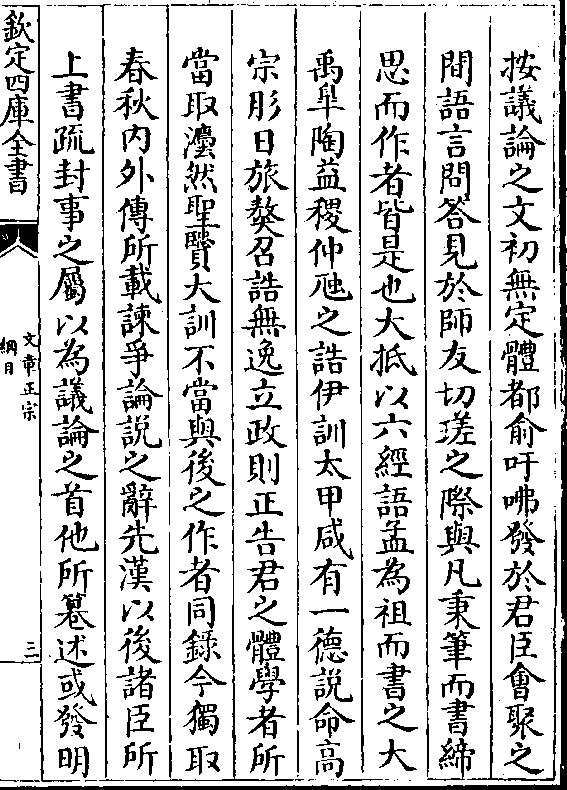 按議論之文初無定體都俞吁咈發於君臣會聚之
間語言問答見於師友切瑳之際與凡秉筆而書締
思而作者皆是也大抵以六經語孟為祖而書之大
禹臯陶益稷仲虺之誥伊訓太甲咸有一德説命高
宗肜日旅獒召誥無逸立政則正告君之體學者所
當取灋然聖賢大訓不當與後之作者同錄今獨取
春秋内外傳所載諫爭論説之辭先漢以後諸臣所
上書疏封事之屬以為議論之首他所纂述或發明
欽定四庫全書
文章正宗
綱目
三